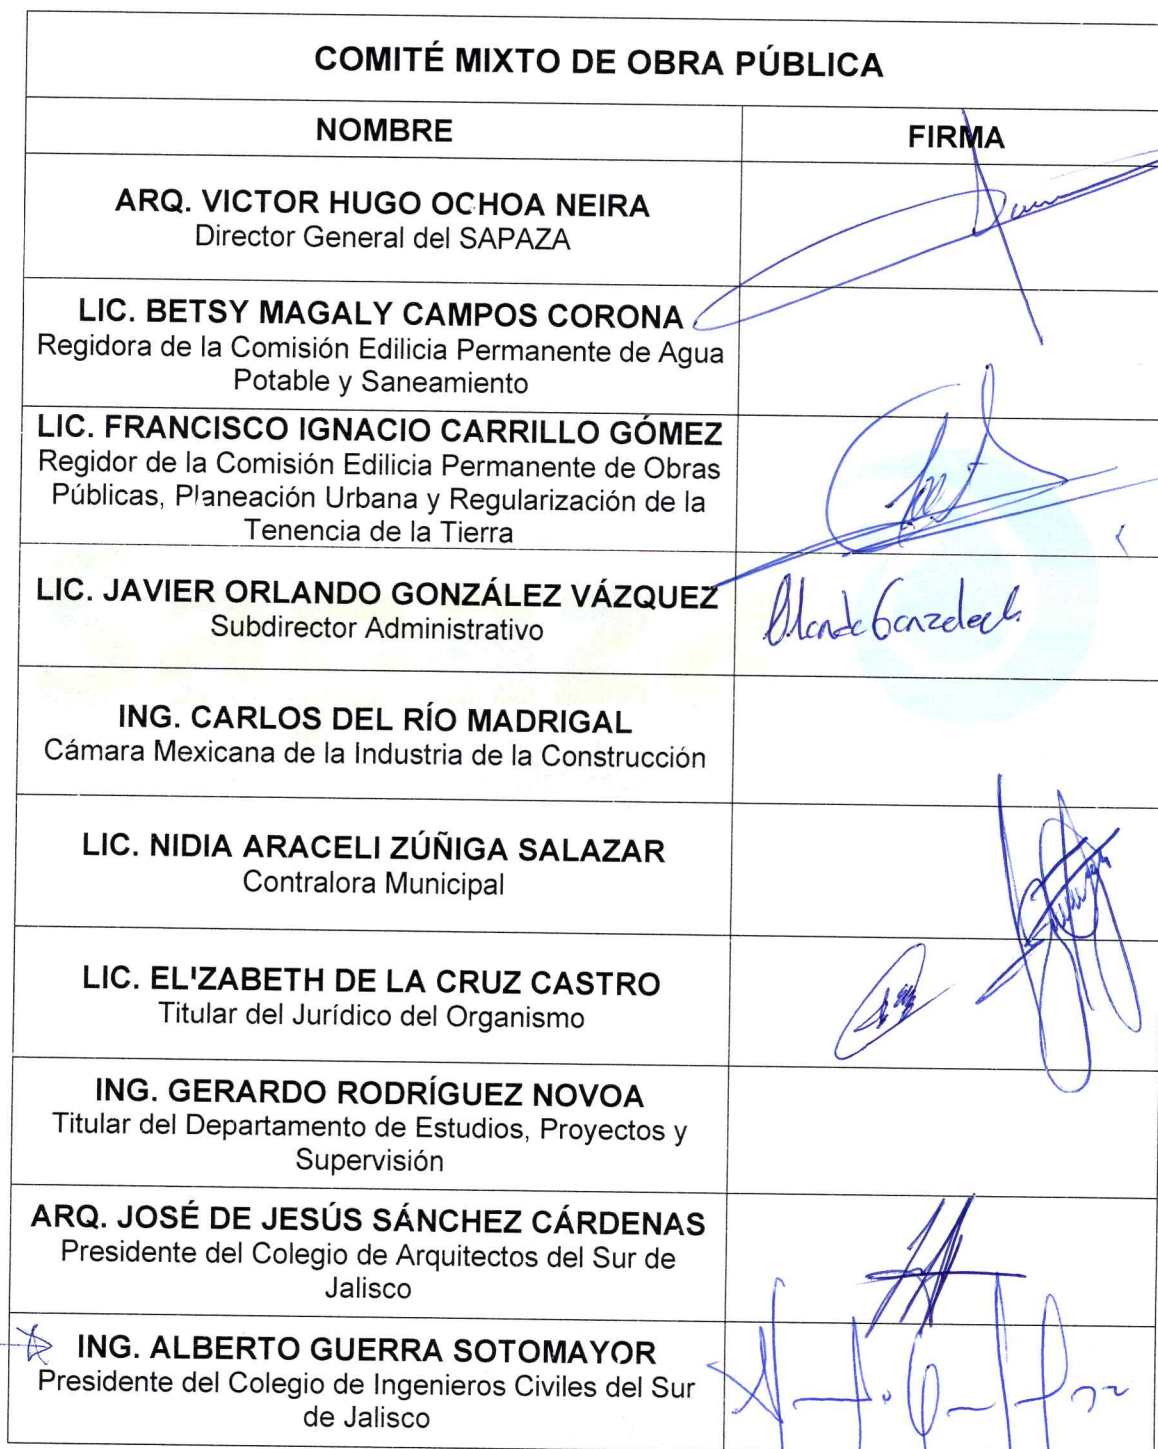 COMITÉ MIXTO DE OBRA PÚBLICA
NOMBRE
FIRMA
ARQ. VICTOR HUGO OCHOA NEIRA
Director General del SAPAZA
LIC. BETSY MAGALY CAMPOS CORONA
Regidora de la Comisión Edilicia Permanente de Agua
Potable y Saneamiento
LIC. FRANCISCO IGNACIO CARRILLO GÓMEZ
Regidor de la Comisión Edilicia Permanente de Obras
Públicas, Planeación Urbana y Regularización de la
Tenencia de la Tierra
LIC. JAVIER ORLANDO GONZÁLEZ VÁZQUEZ
Subdirector Administrativo
ING. CARLOS DEL RÍO MADRIGAL
Cámara Mexicana de la Industria de la Construcción
LIC. NIDIA ARACELI ZÚÑIGA SALAZAR
Contralora Municipal
LIC. ELIZABETH DE LA CRUZ CASTRO
Titular del Jurídico del Organismo
ING. GERARDO RODRÍGUEZ NOVOA
Titular del Departamento de Estudios, Proyectos y
Supervisión
ARQ. JOSÉ DE JESÚS SÁNCHEZ CÁRDENAS
Presidente del Colegio de Arquitectos del Sur de
Jalisco
ING. ALBERTO GUERRA SOTOMAYOR
Presidente del Colegio de Ingenieros Civiles del Sur
de Jalisco